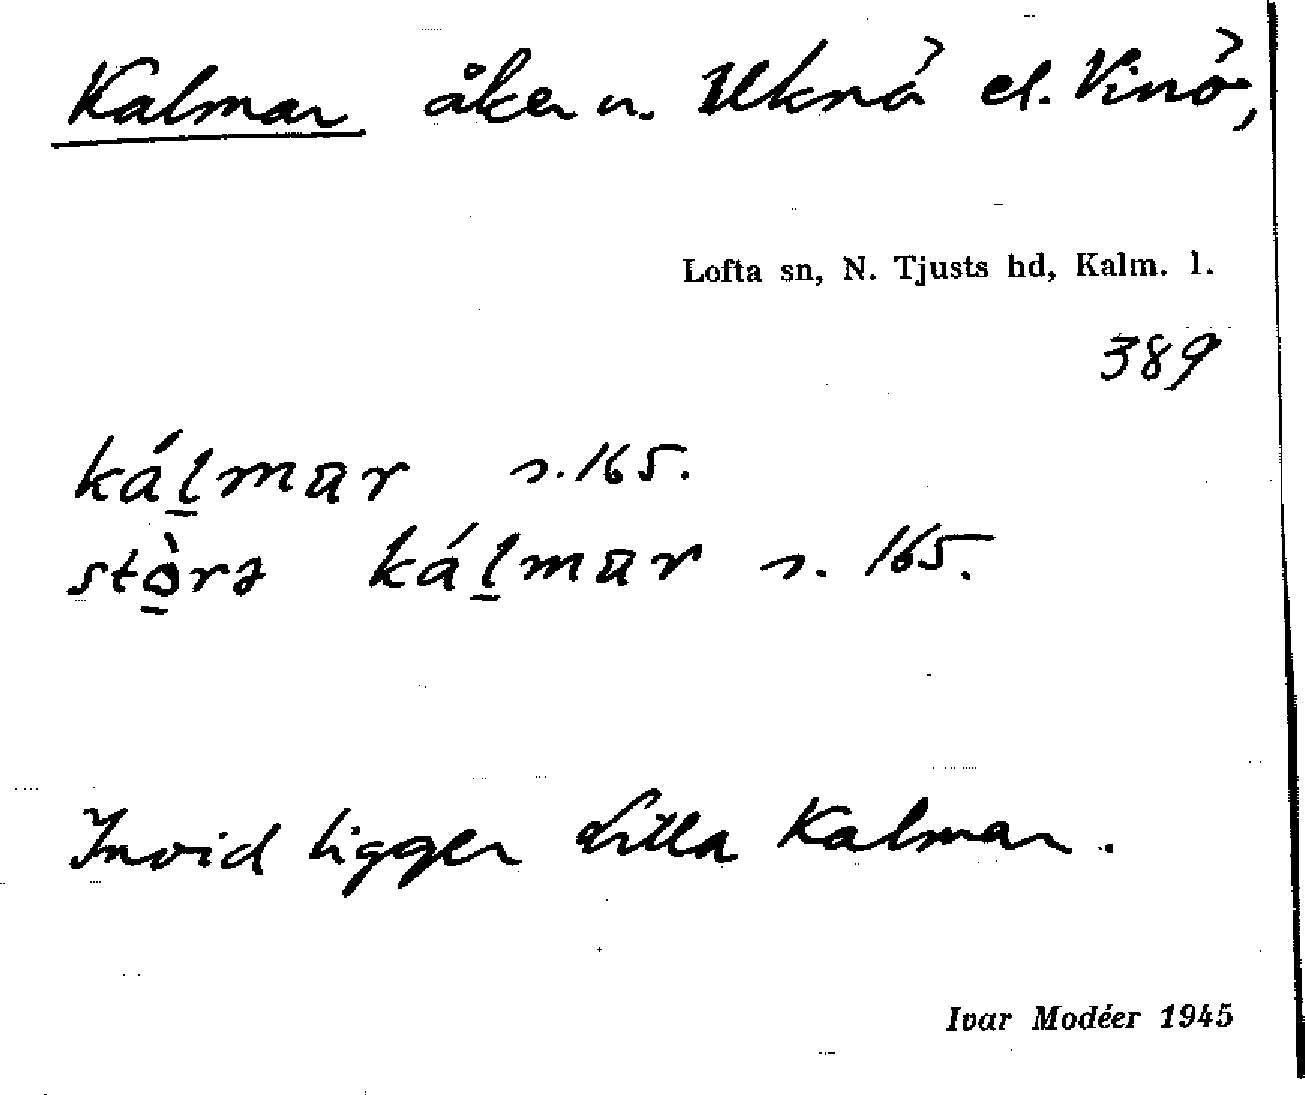 Kalmar åker u. Uknö el. Vinö,
Lofta sn, N. Tjusts hd, Kalm. l.
389
ká̱lmar s. 165.
stò̱rə ká̱lmar s. 165.
Invid ligger Lilla Kalmar.
Ivar Modéer 1945